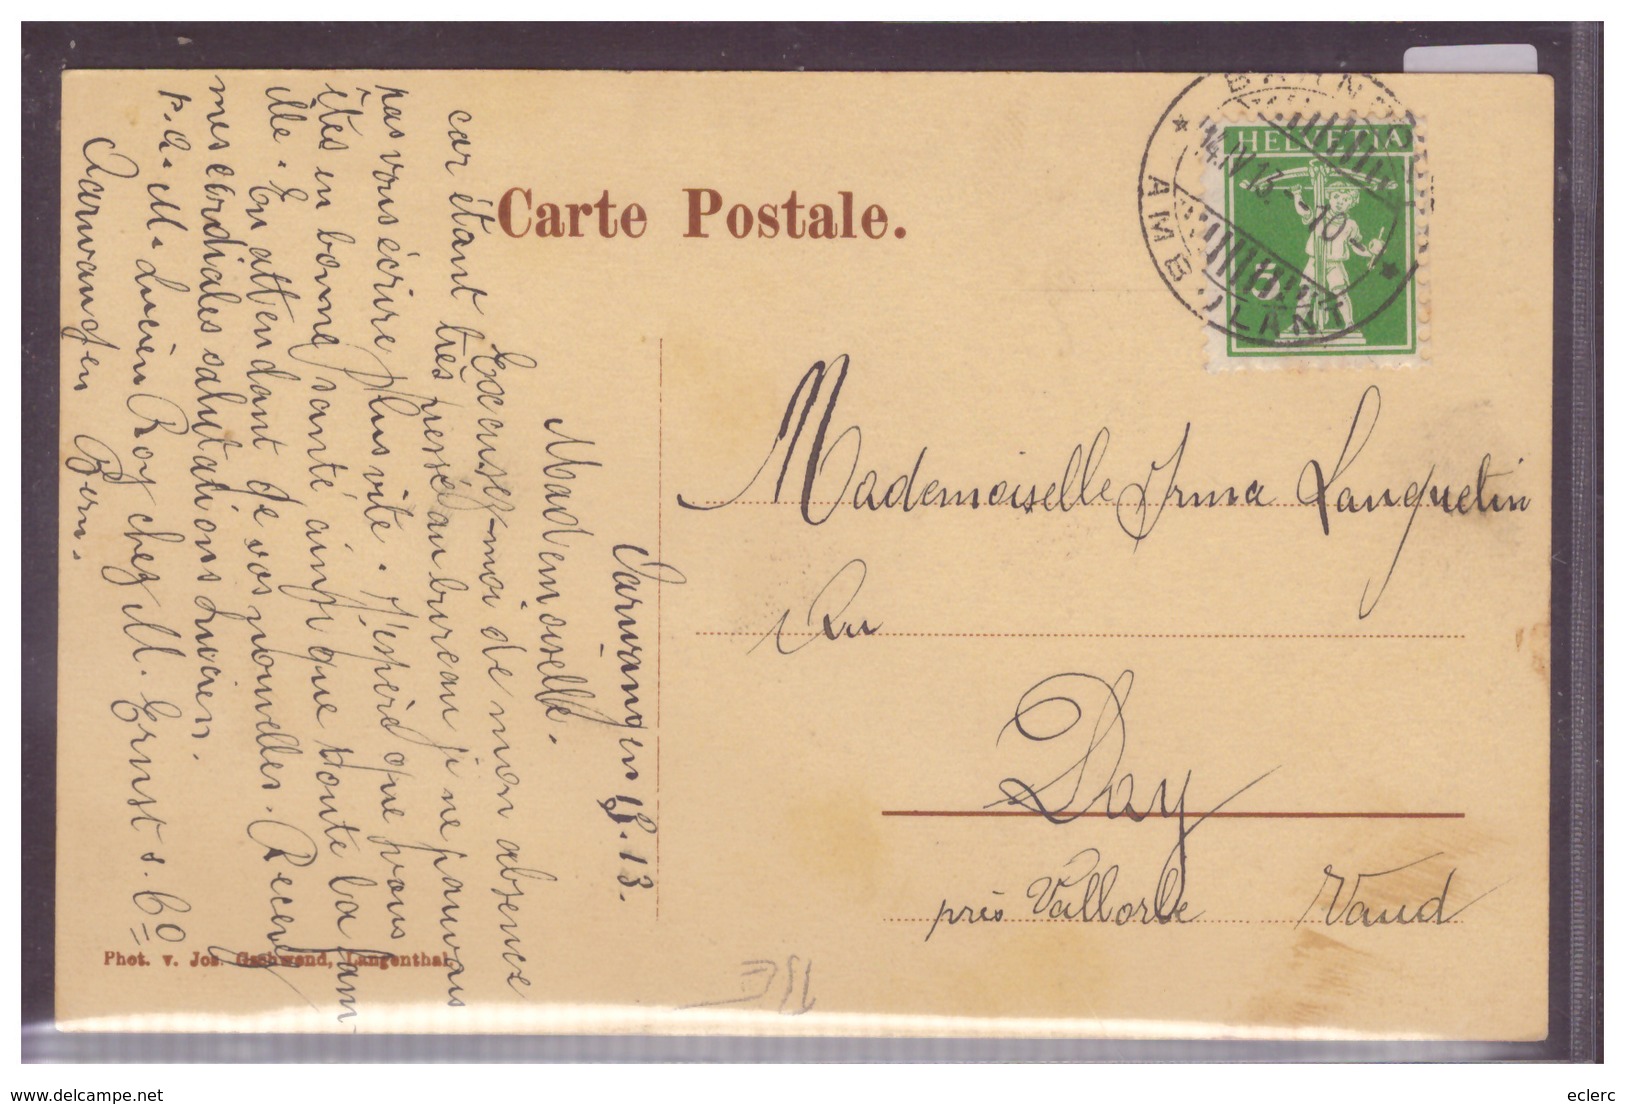 Carte Postale.
HELVETIA
5
14.IV.13.-10
AMBULANT
Aarwangen 13.13.
Mademoiselle.
Excusez-moi de mon absence
car étant très pressé au bureau je ne pouvais
pas vous écrire plus vite. J'espère que vous
êtes en bonne santé ainsi que toute la fam-
ille. En attendant de vos nouvelles. Recevez
mes cordiales salutations Lucien.
p.a. M. Lucien Roy chez M. Ernst s. Co
Aarwangen Bern.
Mademoiselle Irma Languetin
Au
Day
près Vallorbe Vaud
Phot. v. Jos. Gschwend, Langenthal.
delcampe.net
eclerc